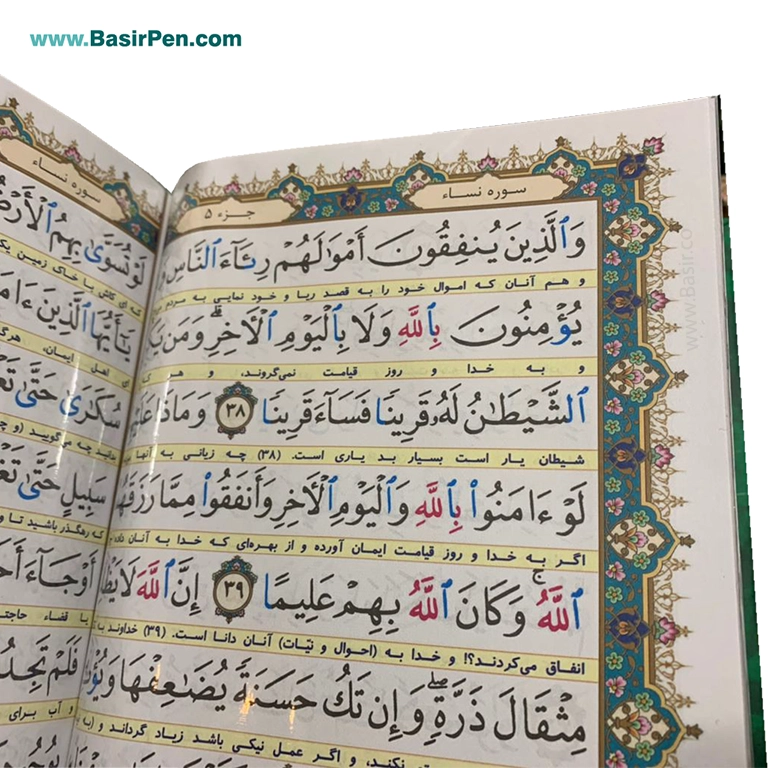 www.BasirPen.com
سوره نساء
جزء ۵
وَٱلَّذِينَ يُنفِقُونَ أَمْوَٰلَهُمْ رِئَآءَ ٱلنَّاسِ
و هم آنان که اموال خود را به قصد ریا و خود نمایی به مردم
يُؤْمِنُونَ بِٱللَّهِ وَلَا بِٱلْيَوْمِ ٱلْأَخِرِ ۗ وَمَن
و به خدا و روز قیامت نمی‌گروند، و هر که
ٱلشَّيْطَٰنُ لَهُۥ قَرِينًا فَسَآءَ قَرِينًا ۳۸ وَمَاذَا
شیطان یار است بسیار بد یاری است. (۳۸) چه زیانی به آنها
لَوْ ءَامَنُوا۟ بِٱللَّهِ وَٱلْيَوْمِ ٱلْأَخِرِ وَأَنفَقُوا۟ مِمَّا
اگر به خدا و روز قیامت ایمان آورده و از بهره‌ای که خدا به آنان داده
ٱللَّهُ ۚ وَكَانَ ٱللَّهُ بِهِمْ عَلِيمًا ۳۹ إِنَّ ٱللَّهَ لَا
انفاق می‌کردند؟! و خدا به (احوال و نیّات) آنان دانا است. (۳۹) خداوند به
مِثْقَالَ ذَرَّةٍ ۖ وَإِن تَكُ حَسَنَةً يُضَٰعِفْهَا
نکند، و اگر عمل نیکی باشد زیاد گرداند و
سوره نساء
لَوْ تُسَوَّىٰ بِهِمُ
که ای کاش با خاک زمین
يَٰٓأَيُّهَا ٱلَّذِينَ
ای اهل ایمان، هرگز
سُكَٰرَىٰ حَتَّىٰ
بدانید چه می‌گویید
سَبِيلٍ حَتَّىٰ
که رهگذر باشید تا
أَوْ جَآءَ
یا قضاء حاجتی
فَلَمْ تَجِدُ
و آب برای
www.Basir.co